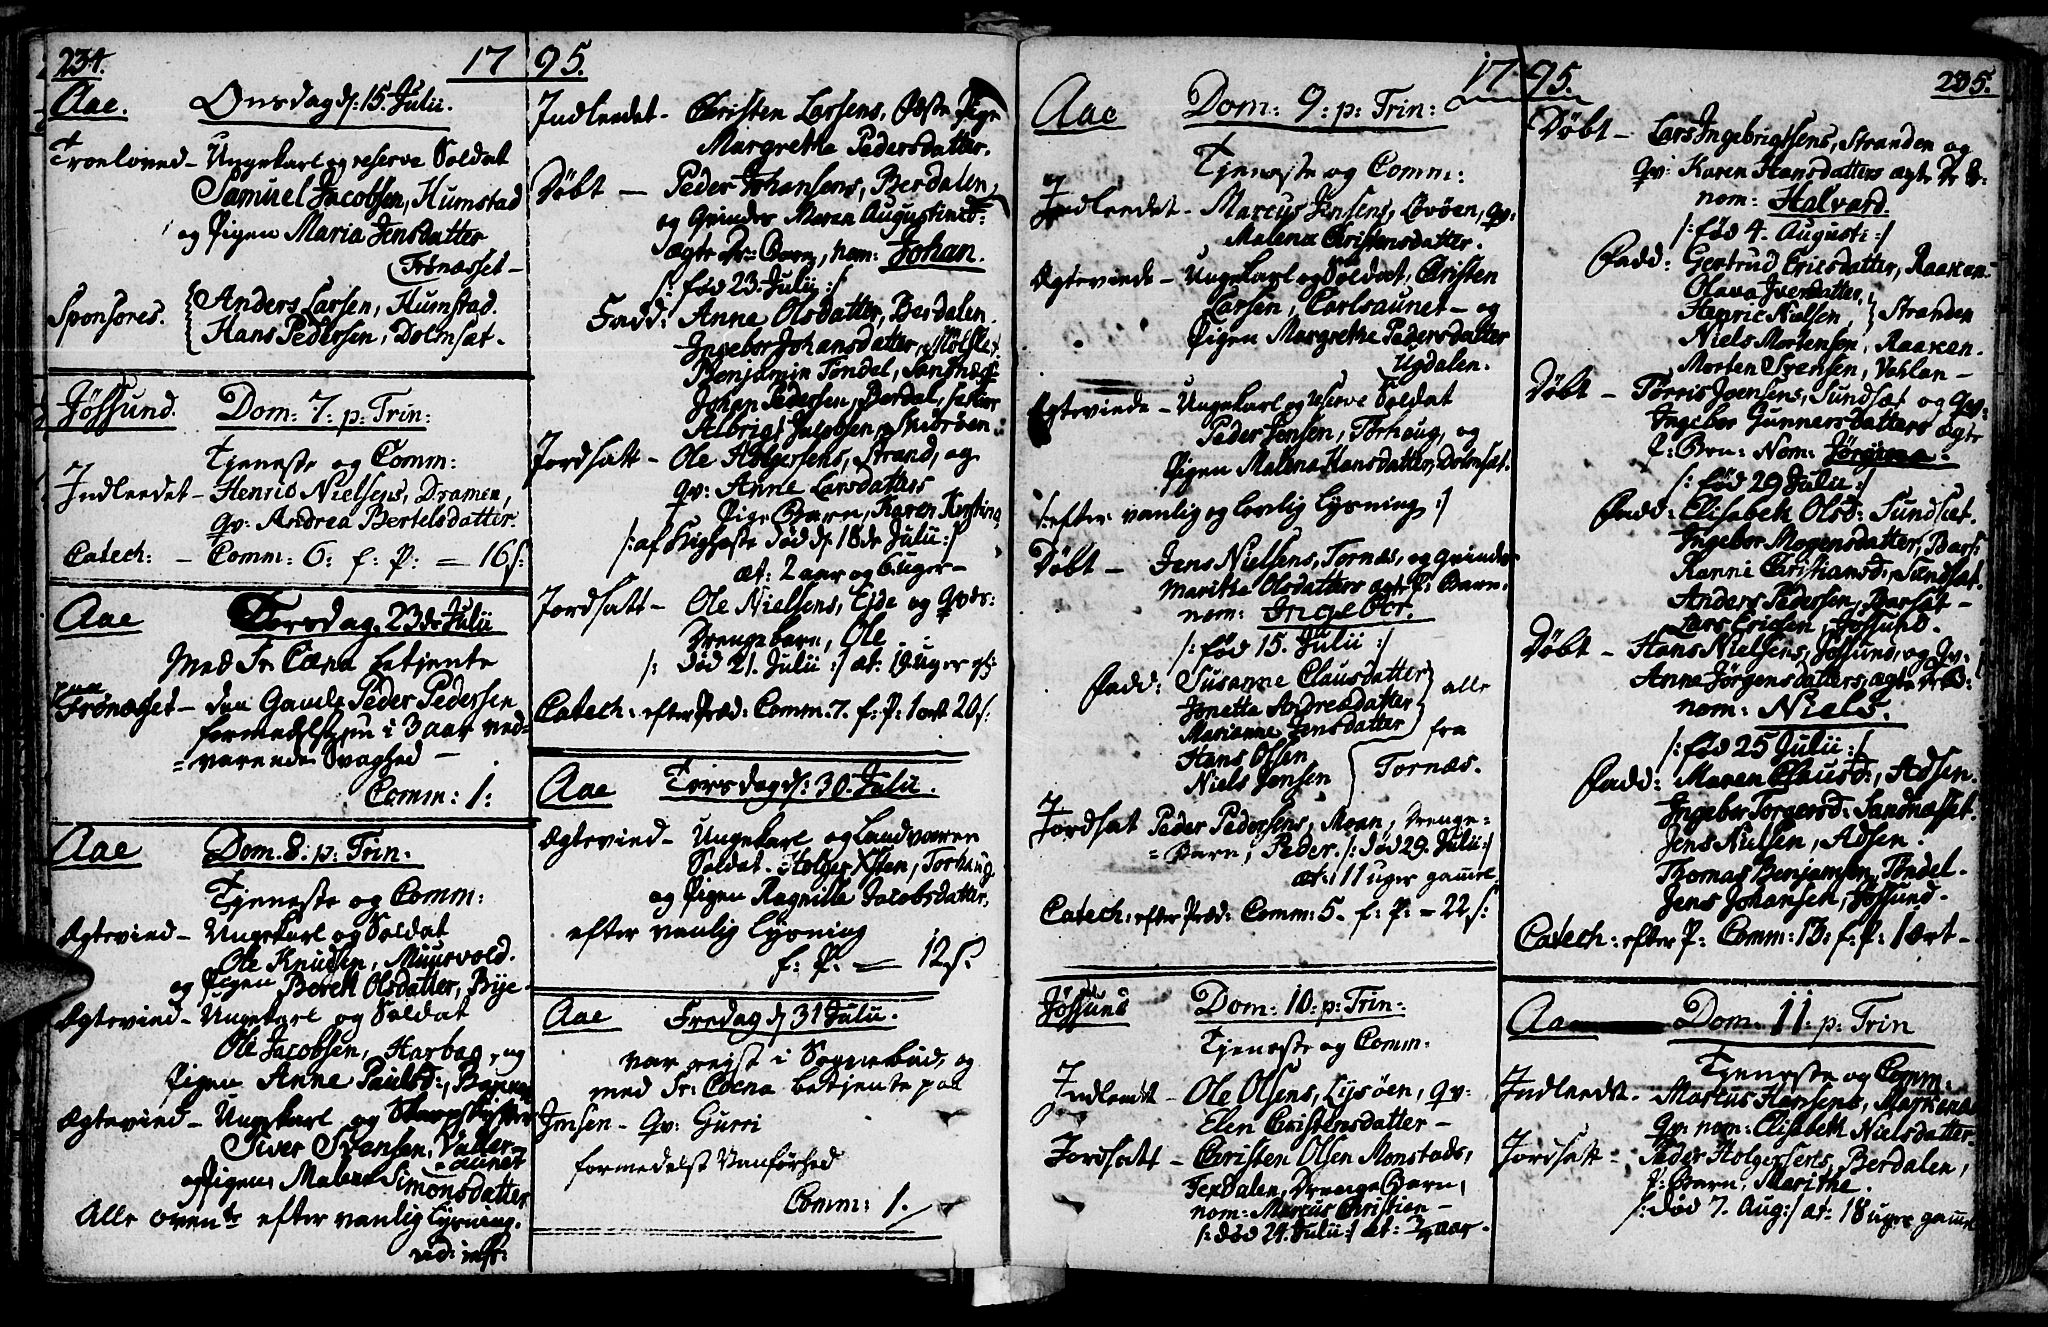 234.
17 95.
Aae. Onsdag d: 15 Julii.
Troeloved – Ungekarl og reserve Soldat
Samuel Jacobsen, Humstad
og Pigen Maria Jensdatter
Trønæsset –
Sponsores. Anders Larsen, Humstad.
Hans Pedersen, Dolmsæt –
Jøssund. Dom: 7: p: Trin:
Tjeneste og Comm:
Indleedet – Henric Nielsens, Dramen,
qv: Andrea Bertelsdatter.
Catech: – Comm: 6: f: P: = 16 s:
Aae Torsdag 23de Julii
Med Sr: Cæna betjente
paa
Trønæsset – den Gamle Peder Pedersen
formedelst nu i 3 aar ved-
varende Svaghed –
Comm: 1:
Aae Dom. 8. p: Trin:
Tjeneste og Comm:
Ægtevied – Ungekarl og Soldat
Ole Knudsen, Muusvold.
og Pigen Bereth Olsdatter, Bye.
Ægtevied – Ungekarl og Soldat
Ole Jacobsen, Harbag, og
Pigen Anne Paulsd:,
Ægtevied – Ungekarl og
Siver Svensen, Valler-
aunet
og Pigen Malena Simonsdatter
Alle ovenst: efter vanlig lysning.
vid: infr:
Indleedet – Christen Larsens, Fæste Pige
Margrethe Pedersdatter.
Døbt – Peder Johansens, Berdalen,
og Qvindes Maren Augustinæd:
ægte Dr: Barn, nom: Johan.
/: fød 23 Julii :/
Fadd: Anna Olsdatter, Berdalen.
Ingebor Johansdatter,
Benjamin Tøndel, Sandnæss
Johan Pedersen, Berdal,
Albrigt Jacobsen,
Jordsatt – Ole Holgersens, Strand, og
qv: Anne Larsdatters
Pige Barn, Karen Kirstina
/: af død d: 18de Julii :/
æt: 2 aar og 6 uger –
Jordsatt – Ole Nielsens, Eide og Qvds:
Drengebarn, Ole
/: død 21. Julii :/ æt: 19 uger gl:
Catech: efter Præd: Comm: 7. f: P: 1 ort 20 s:
Aae Torsdag d: 30. Julii.
Ægtevied – Ungekarl og Landværn
Soldat. Holger Xsten, Torhaug.
og Pigen Ragnille Jacobsdatter,
efter vanlig lysning
f: P: = 12 s:
Aae Fredag d 31 Julii.
var reist i Sognebud, og
med Sr: Coena betjente paa
Imsen – Qv: Gurri
formedelst Vanførhed
Comm: 1.
17 95.
235.
Aae Dom: 9: p: Trin:
Tjeneste og Comm:
Indleedet – Marcus Jensens, Løvøen, qv:
Malena Christensdatter.
Ægteviede – Ungekarl og Soldat, Christen
Larsen, Carlsaunet – og
Pigen Margrethe Pedersdatter
Ugdalen.
Egteviede – Ungekarl og reserve Soldat
Peder Jensen, Torhaug, og
Pigen Malena Hansdatter, Dolmsæt.
/: efter vanlig og lovlig lysning :/
Døbt – Jens Nielsens, Tornæs, og Qvindes
Marithe Olsdatters ægte P: Barn.
nom: Ingebor.
/: fød 15. Julii :/
Fadd: Susanne Clausdatter
Jonetta Andreædatter
Marianne Jensdatter
Hans Olsen
Niels Jensen
alle
fra
Tornæs.
Jordsat Peder Pedersens, Moan, Drenge-
Barn, Peder. /: død 29. Julii :/
æt: 11 uger gamel.
Catech: efter Præd: Comm: 5. f: P: = 22 s:
Jøssund Dom: 10: p: Trin:
Tjeneste og Comm:
Indleedt – Ole Olsens, Lysøen, qv:
Elen Christensdatter –
Jordsatt – Christen Olsen Monstads,
Texdalen, Drenge Barn,
nom: Marcus Christian –
/: død 24. Julii :/ æt: aar –
Døbt – Lars Ingebrigtsens, Stranden og
qv: Karen Hansdatters ægte Dr B:
nom: Halvard.
/: fød 4. Augusti :/
Fadd: Gertrud Ericsdatter, Raaken.
Olava Iversdatter,
Henric Nielsen, Stranden
Niels Mortensen, Raaken.
Morten Svensen, Veklan –
Døbt – Torris Joensens, Sundsæt og Qv:
Ingebor Gunnersdatters ægte
P: Brn: Nom: Jørgina.
/: fød 29 Julii :/
Fadd: Elisabeth Olsd: Sundsæt.
Ingebor Mogensdatter,
Ranni Christiansd:, Sundsæt.
Anders Pedersen, Barsæt –
Lars Ericsen, Jøssund.
Døbt – Hans Nielsens, Jøssund, og Qv:
Anne Jørgensdatters, ægte
nom: Niels.
/: fød 25 Julii :/
Fadd: Maren Clausd:, Adsen.
Ingebor Torgersd: Sandnæsset.
Jens Nielsen, Adsen.
Thomas Benjamsen, Tøndel.
Jens Johansen, Jøssund.
Catech: efter P: Comm: 13: f: P: 1 ort –
Aae Dom. 11: p: Trin
Tjeneste og Comm:
Indleedt. Marcus Hansens,
qv: nom: Elisabeth Nielsdatter.
Jordsatt – Peder Holgersens, Berdalen,
P: Barn, Marithe.
/: død 7. Aug :/ æt: 18 uger gamel